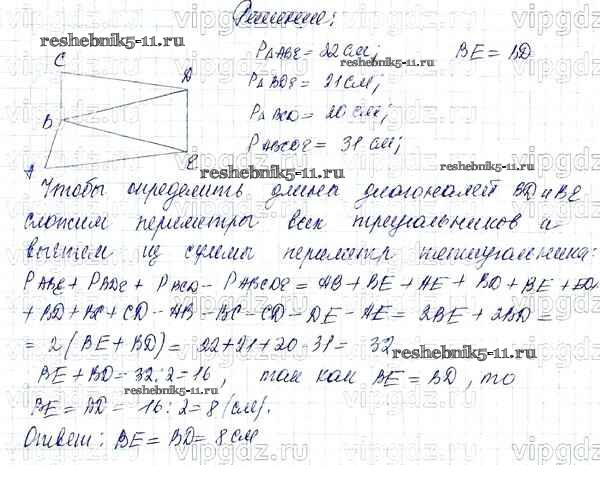 Решение:
P△ABE = 22 см; BE = BD
P△BDE = 21 см;
P△BCD = 20 см;
PABCDE = 31 см;
C
D
B
E
A
Чтобы определить длины диагоналей BD и BE
сложим периметры всех треугольников и
вычтем из суммы периметр пятиугольника:
PABE + PBDE + PBCD - PABCDE = AB + BE + AE + BD + BE + ED
+ BD + BC + CD - AB - BC - CD - DE - AE = 2BE + 2BD =
= 2(BE + BD) = 22+21+20-31 = 32
BE + BD = 32:2=16, так как BE = BD, то
BE = BD = 16:2=8 (см).
Ответ: BE = BD = 8 см
reshebnik5-11.ru
reshebnik5-11.ru
reshebnik5-11.ru
reshebnik5-11.ru
reshebnik5-11.ru
vipgdz.ru